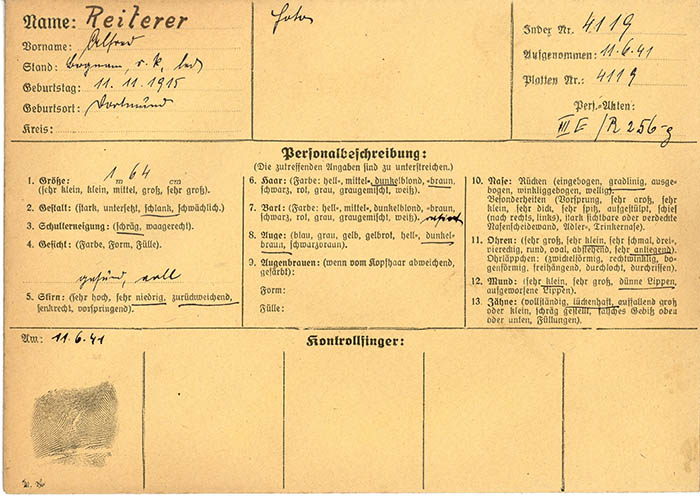 Name: Reiterer
Vorname: Alfred
Stand: r. k. led
Geburtstag: 11. 11. 1915
Geburtsort: Dortmund
Kreis:
Foto
Index Nr. 4119
Aufgenommen: 11.6.41
Platten Nr.: 4119
Pers.-Akten:
III E /R 256-g
Personalbeschreibung:
(Die zutreffenden Angaben sind zu unterstreichen.)
1. Größe: 1 m 64 cm
(sehr klein, klein, mittel, groß, sehr groß).
2. Gestalt: (stark, untersetzt, schlank, schwächlich).
3. Schulterneigung: (schräg, waagerecht).
4. Gesicht: (Farbe, Form, Fülle).
gesund, voll
5. Stirn: (sehr hoch, sehr niedrig, zurückweichend,
senkrecht, vorspringend).
6. Haar: (Farbe: hell-, mittel-, dunkelblond, -braun,
schwarz, rot, grau, graugemischt, weiß).
7. Bart: (Farbe: hell-, mittel-, dunkelblond, -braun,
schwarz, rot, grau, graugemischt, weiß). rasiert
8. Auge: (blau, grau, gelb, gelbrot, hell-, dunkel-
braun, schwarzbraun).
9. Augenbrauen: (wenn vom Kopfhaar abweichend,
gefärbt):
Form:
Fülle:
10. Nase: Rücken (eingebogen, gradlinig, ausge-
bogen, winkliggebogen, wellig).
Besonderheiten (Vorsprung, sehr groß, sehr
klein, sehr dick, sehr spitz, aufgestülpt, schief
(nach rechts, links), stark sichtbare oder verdeckte
Nasenscheidewand, Adler-, Trinkernase).
11. Ohren: (sehr groß, sehr klein, sehr schmal, drei-
viereckig, rund, oval, abstehend, sehr anliegend).
Ohrläppchen: (zwickelförmig, rechtwinklig, bo-
genförmig, freihängend, durchlocht, durchrissen).
12. Mund: (sehr klein, sehr groß, dünne Lippen,
aufgeworfene Lippen).
13. Zähne: (vollständig, lückenhaft, auffallend groß
oder klein, schräg gestellt, falsches Gebiß oben
oder unten, Füllungen).
Am: 11.6.41
Kontrollfinger: